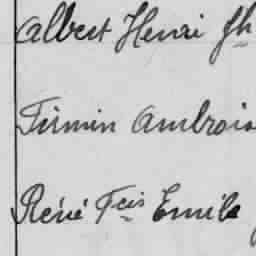 Albert Henri Jh
Firmin Ambrois
René Fcis Emile